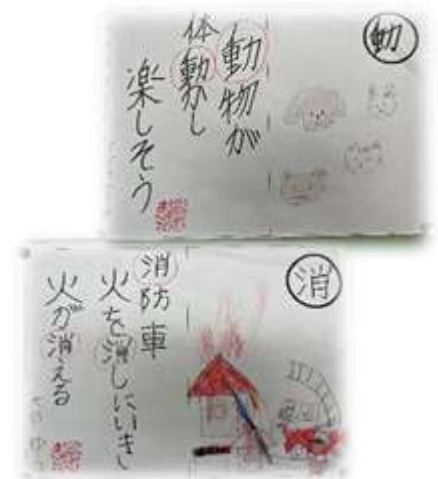 動
動物が
体動かし
楽しそう
消
消防車
火を消しにいきし
火が消える